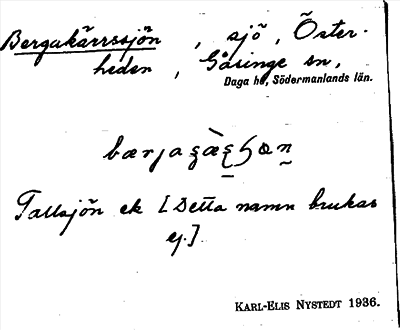 Bergakärrssjön, sjö, Öster-
heden, Gåsinge sn,
Daga hd, Södermanlands län.
Tallsjön ek [Detta namn brukas
ej.]
KARL-ELIS NYSTEDT 1936.